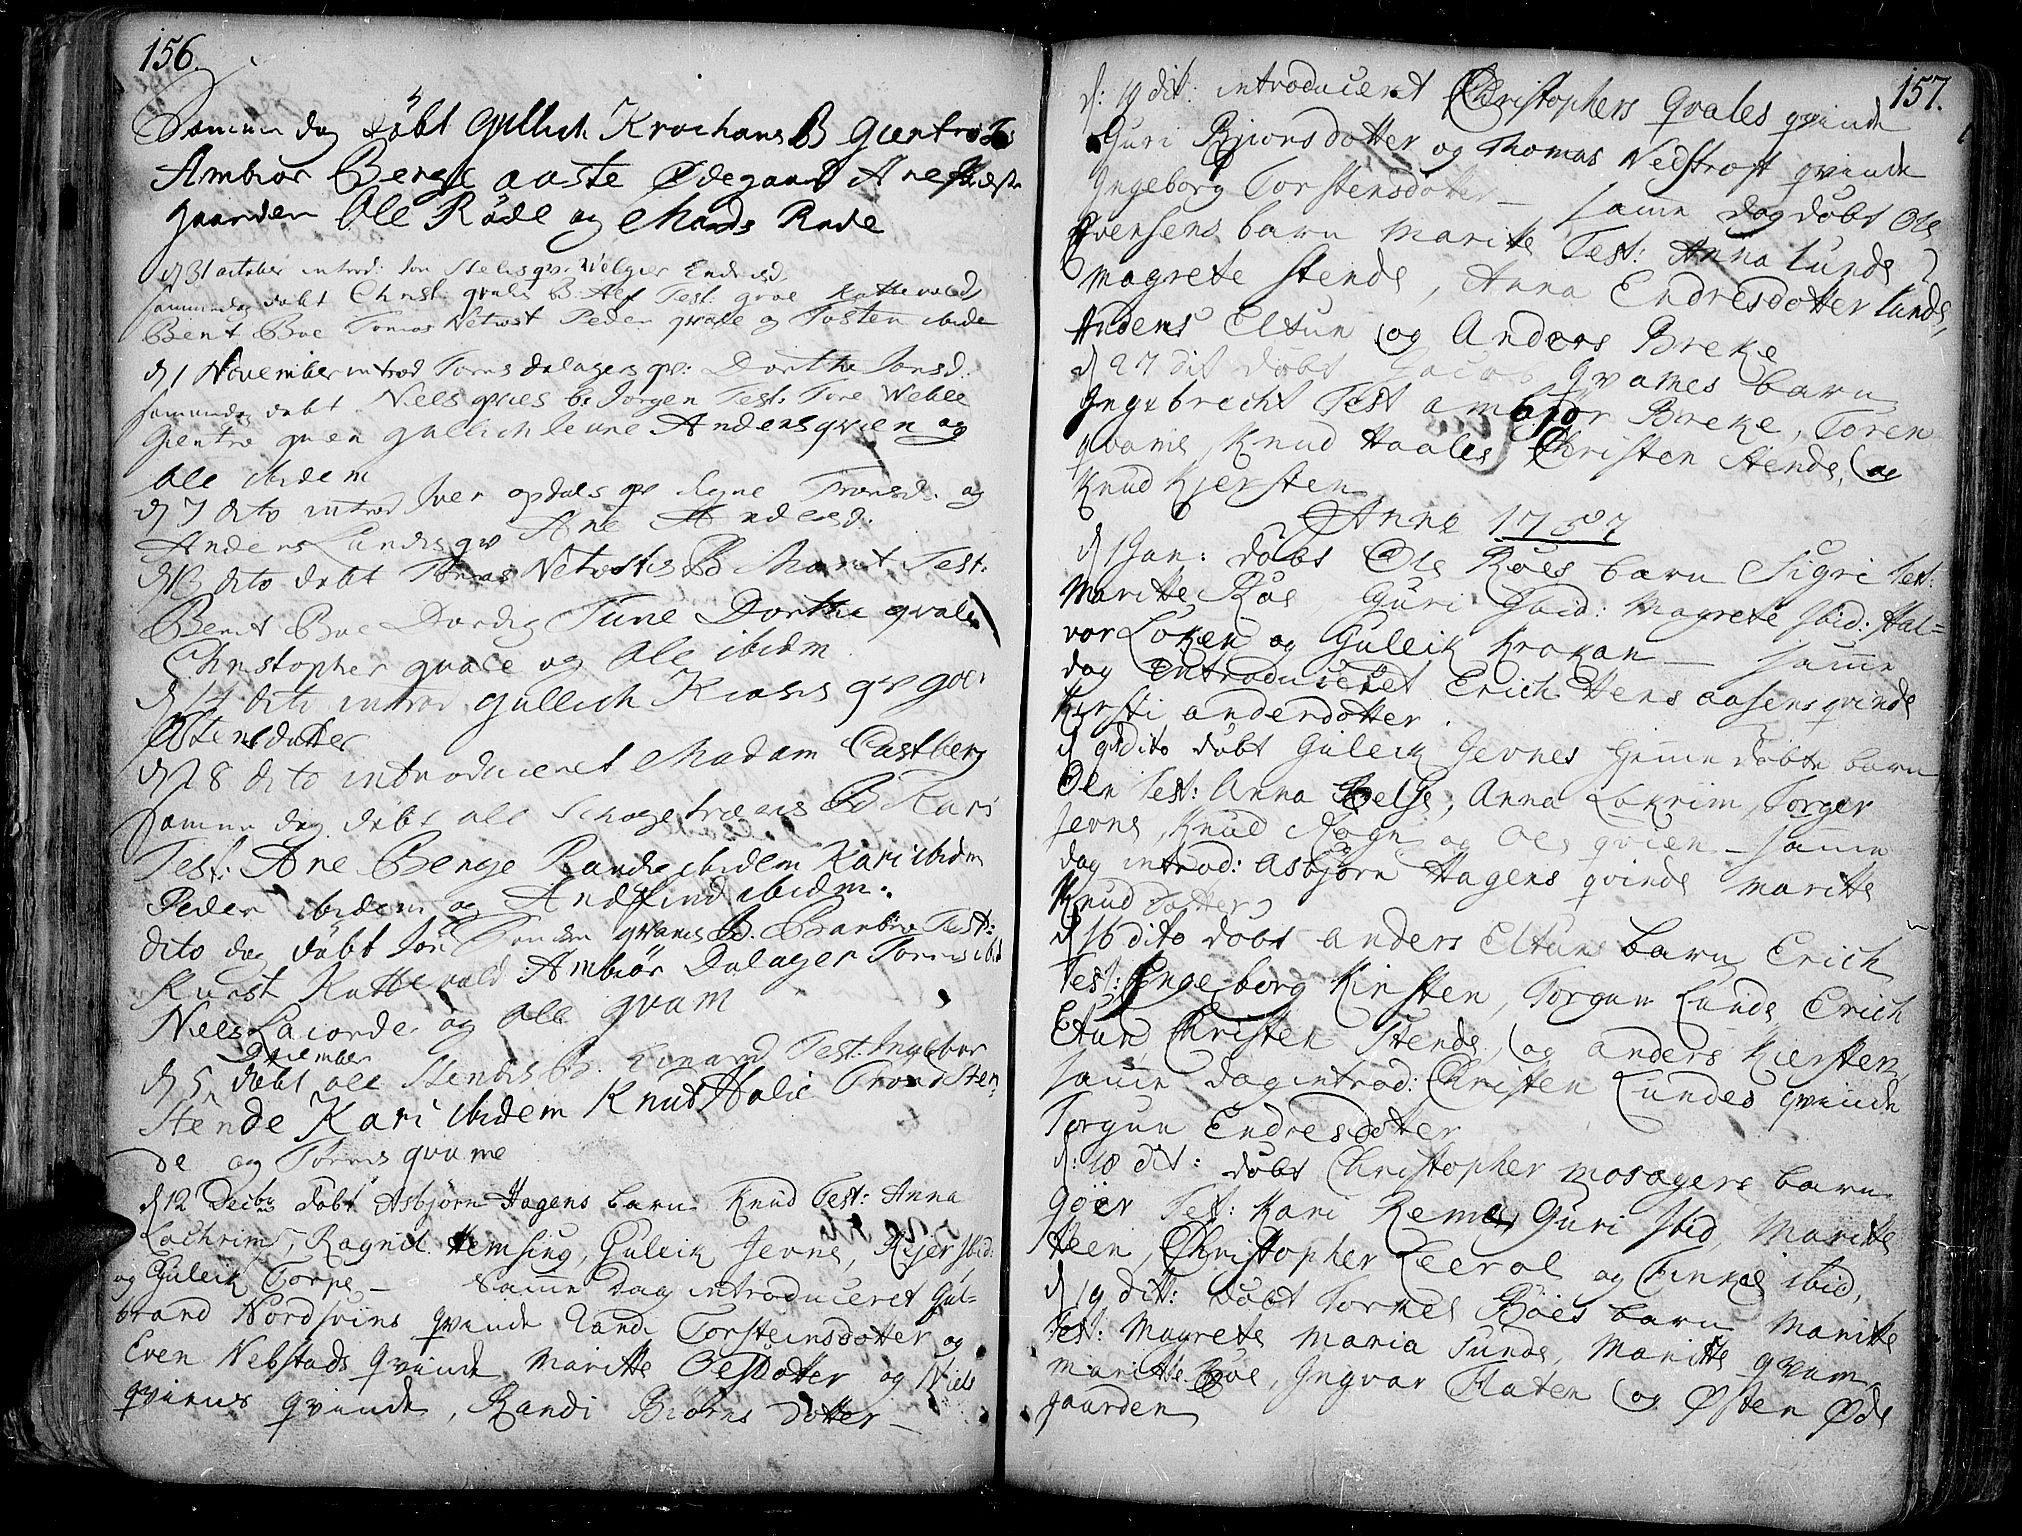 156.
Samme dag döbt Gullich Krochans B Gientrö Test
Ambiör Benge aaste Ødegaard Ane
gaarden Ole Röde og Mads Röde
d 31 october introd: Jon Stehs qv. Welgier Endresd
samme dag döbt Christ: qvales B. Alf Test: groe Kattevold
Bent Boe Tomas Netrost Peder qvale og Tosten ibide
d 1 November introd Torns dalagers qv: Dorthe Jonsd.
samme dag döbt Niels qviens b. Jörgen Test: Tore Weble
Gientrö qvien gullich Jevne Anders qvien og
Ole ibidem
d 7 dito introd Iver opdals qv Signe Tronsd. og
Anders Lundes qv Ane Andersd:
d 13 dito döbt Tomas Netrostes B Marit Test:
Berit Boe Dordig Tune Dorthe qvale
Christopher qvale og Ole ibidm
d 14 dito introd gullich Kroses qv goe
Ostensdatter
d 28 dito introduceret Madam Castberg
samme dag döbt Ole Schogstræens B Kari
Test: Ane Benge Randi ibidem Kari ibidm
Peder ibidem og Andfind ibidm.
dito dag döbt qvams B. Barbro Test:
Kunst Kattevold Ambiör Dalager Torns ibid
Niels Lajorde og Ole qvam
December
d 5 döbt Ole Stendes B. Einard Test: Ingebor
Stende Kari ibidem Knud Halie Trond Sten-
de og Torns qvame
d 12 Decbr döbt Asbjörn Hagens barn Knud Test: Anna
Lochrim, Ragnil Hemsing, Guleik Jevne, Kejer Ibid:
og Guleik Torpe – Samme dag introduceret Gul=
brand Nordsvins qvinde Randi Torsteinsdotter og
Even Nebstads qvinde Maritte Olsdotter og Niels
qviens qvinde, Randi Biörnsdotter –
157.
d: 19 dit: introduceret Christophers Qvales qvinde
Guri Bjorsdotter og Thomas Nedstrost qvinde
Ingeborg Torstensdotter – samme dag döbt Ole
Evensens barn Maritte Test: Anna Lunde
Magrete Stende, Anna Endresdotter Lunde,
Anders Eltun og Anders Breke
d 27 dit döbt Jacob Qvames barn
Ingebrecht Test Ambjör Breke, Toren
qvame Knud Haalie Christen Stende, og
Knud Kjersten
Anno 1757
d 1 Jan: döbt Ole Röes barn Sigri Test:
Maritte Röe Guri Ibid: Magrete Ibid: Hal=
vor Löken og Guleik Krokan – samme
dag Introduceret Erich Hensaasens qvinde
Kirsti andersdotter.
d 9 dito döbt Guleik Jevnes hiemmedöbte barn
Ole Test: Anna Belse, Anna Lokrim, Torger
Jevne, Knud Rogn og Ole qvien – samme
dag introd: Asbjörn Hagens qvinde Maritte
Knudsdotter
d 16 dito döbt anders Eltuns barn Erich
Test: Engeborg Kirsten, Torgun Lunde Erich
Eltun Christen Stende, og anders Kiersten,
samme dag introd: Christen Lundes qvinde
Torgun Endresdotter
d: 18 dit: döbt Christopher Mosagers barn
Göer Test: Kari Reme Guri Ibid Maritte
Steen, Christopher Leerol og Finkel ibid,
d 19 dit: döbt Tormes Böes barn Maritte
Test: Magrete Maria Tunde, Maritte qvam,
Maritte Böe, Ingvar Flaten og Østen Øde
gaarden